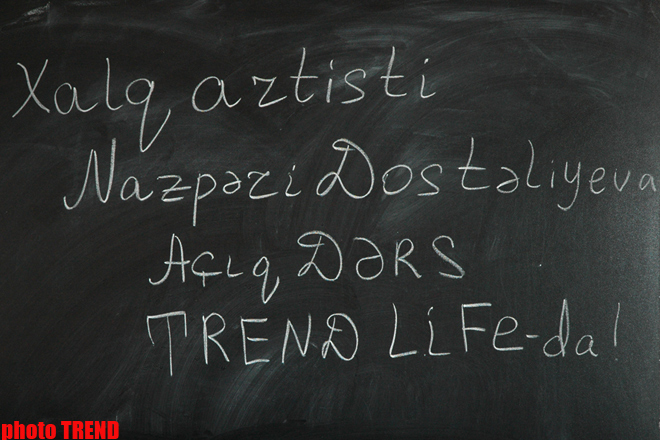 Xalq artisti
Nazpəri Dostəliyeva
Açıq DƏRS
TREND LiFe-da!
photo TREND